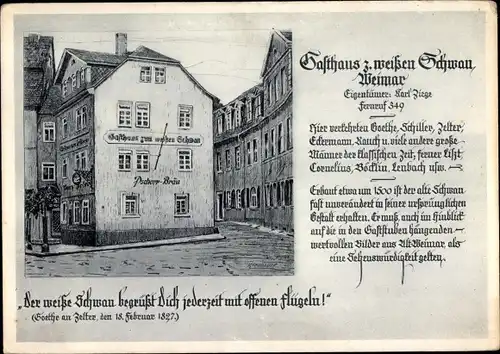 Gasthaus z. weißen Schwan
Weimar
Eigentümer: Karl Ziege
Fernruf 349
Hier verkehrten Goethe, Schiller, Zelter,
Eckermann, Rauch u. viele andere große
Männer der klassischen Zeit, ferner Liszt,
Cornelius, Böcklin, Lenbach usw. –
Erbaut etwa um 1500 ist der alte Schwan
fast unverändert in seiner ursprünglichen
Gestalt erhalten. Er muß, auch im Hinblick
auf die in den Gaststuben hängenden
wertvollen Bilder aus Alt-Weimar, als
eine Sehenswürdigkeit gelten.
Gasthaus zum weißen Schwan
Pschorr-Bräu
„Der weiße Schwan begrüßt Dich jederzeit mit offenen Flügeln!“
(Goethe an Zelter, den 18. Februar 1827.)